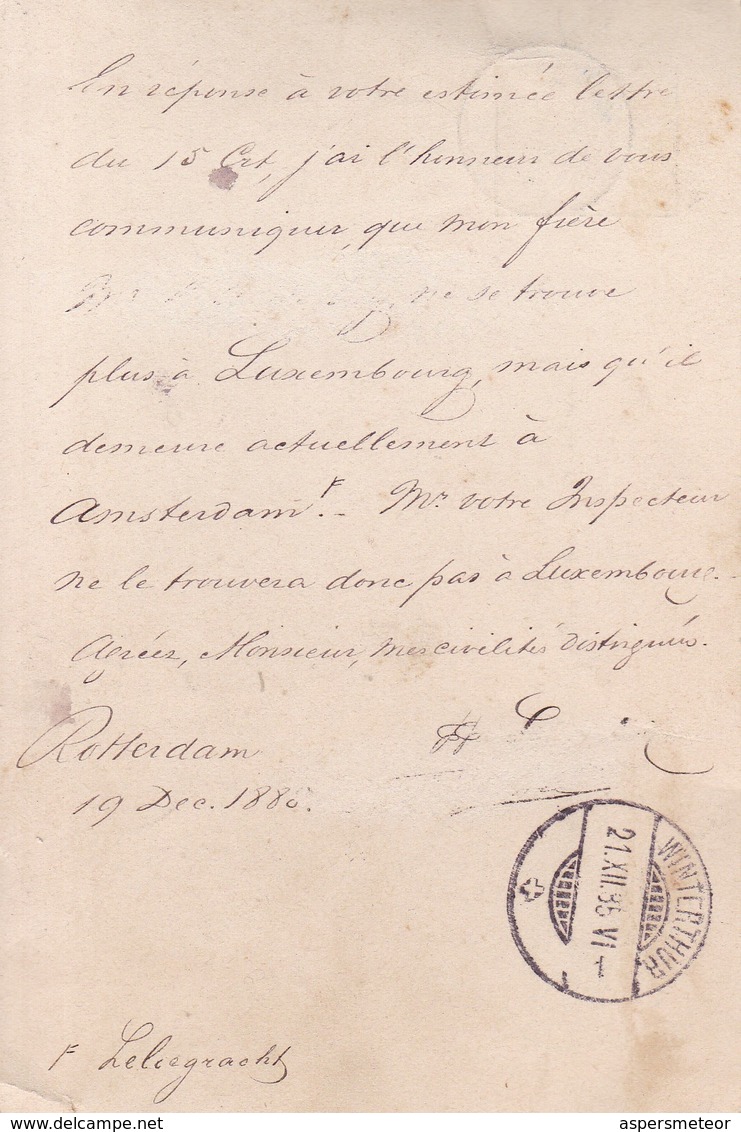 En réponse à votre estimée lettre
du 15 Crt, j'ai l'honneur de vous
communiquer, que mon frère
ne se trouve
plus à Luxembourg, mais qu'il
demeure actuellement à
Amsterdam F. – Mr. votre Inspecteur
ne le trouvera donc pas à Luxembourg. –
Agréez, Monsieur, mes civilités distingués.
Rotterdam
19 Dec. 188
WINTERTHUR
21.XII.86 VI
F Leliegracht
delcampe.net
aspersmeteor